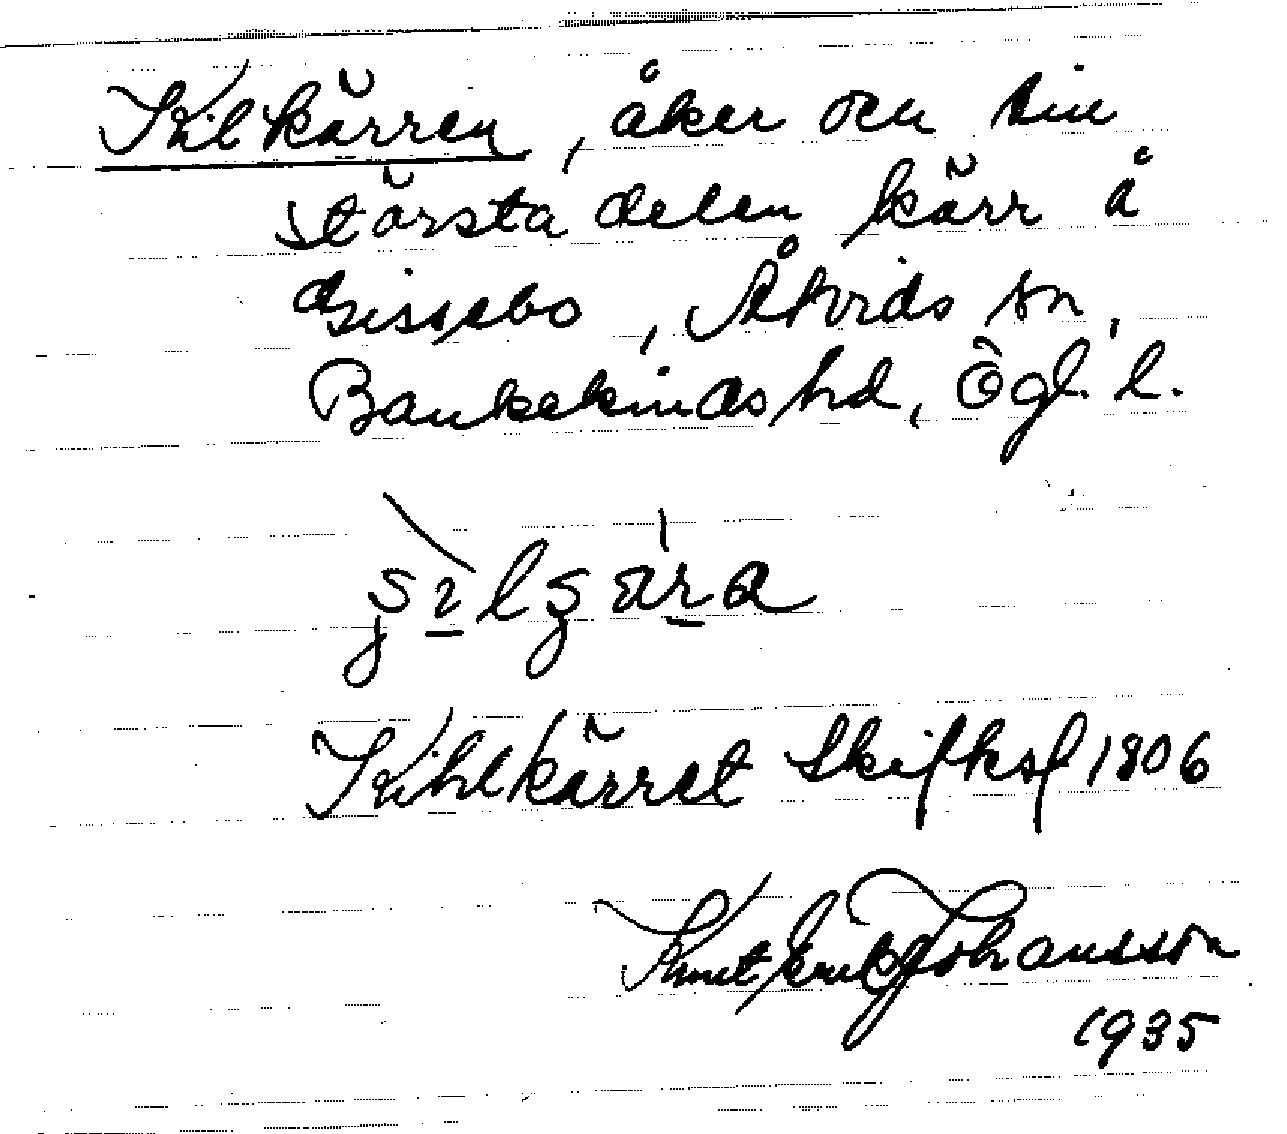 Kilkärren, åker och till
största delen kärr å
Gissebo, Åtvids sn,
Bankekinds hd, Ögl. l.
Kihlkärret Skifksf 1806
Knut Erik Johansson
1935